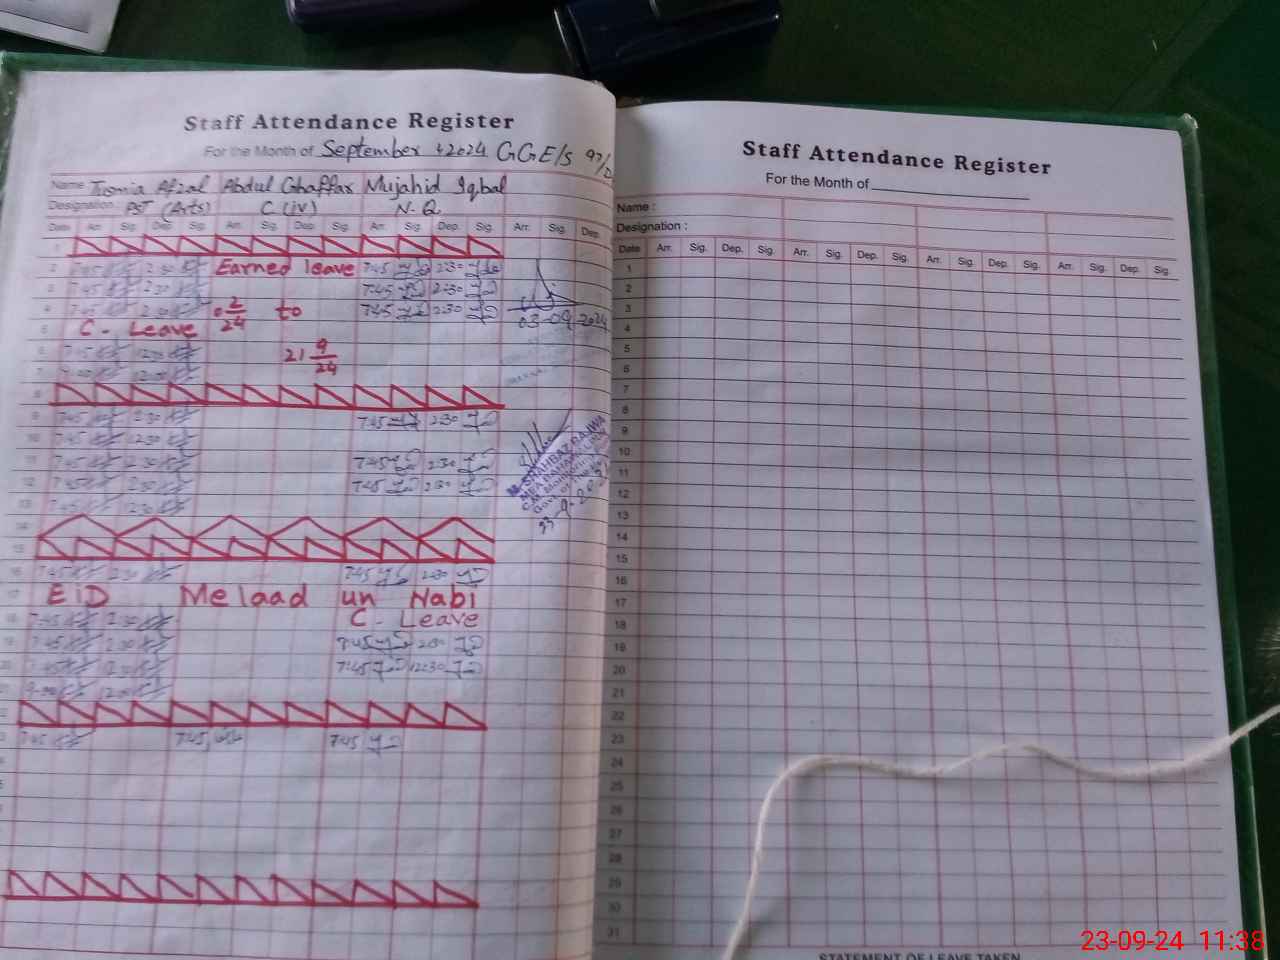 Staff Attendance Register
For the Month of September 2024 GGE/S 97/
Name Abdul Ghaffar Mujahid Iqbal
Designation: PST (Arts) C (iv) N-Q
Date Arr. Sig. Dep. Sig. Arr. Sig. Dep. Sig. Arr. Sig. Dep. Sig. Arr. Sig. Dep.
1
2 7:45 2:30 Earned leave 7:45 2:30
3 7:45 2:30 7:45 2:30
4 7:45 2:30 02/24 to 7:45 2:30
03-09-2024
5 C - Leave
6 7:45 12:30 21 9/24
7 12:00
8
9 7:45 2:30 7:45 2:30
10 7:45 12:30
11 7:45 2:30 7:45 2:30
12 7:45 2:30 7:45 2:30
13 7:45 12:30
M. SHAHBAZ BAJWA
23-9-2024
14
15
16 7:45 2:30 7:45 2:30
17 EiD Melaad un Nabi
18 7:45 2:30 C - Leave
19 7:45 2:30 7:45 2:30
20 7:45 12:30 7:45 12:30
21 9:00 12:00
22
23 7:45 7:45 7:45
Staff Attendance Register
For the Month of
Name :
Designation :
Date Arr. Sig. Dep. Sig. Arr. Sig. Dep. Sig. Arr. Sig. Dep. Sig. Arr. Sig. Dep. Sig.
1
2
3
4
5
6
7
8
9
10
11
12
13
14
15
16
17
18
19
20
21
22
23
24
25
26
27
28
29
30
31
STATEMENT OF LEAVE TAKEN
23-09-24 11:38